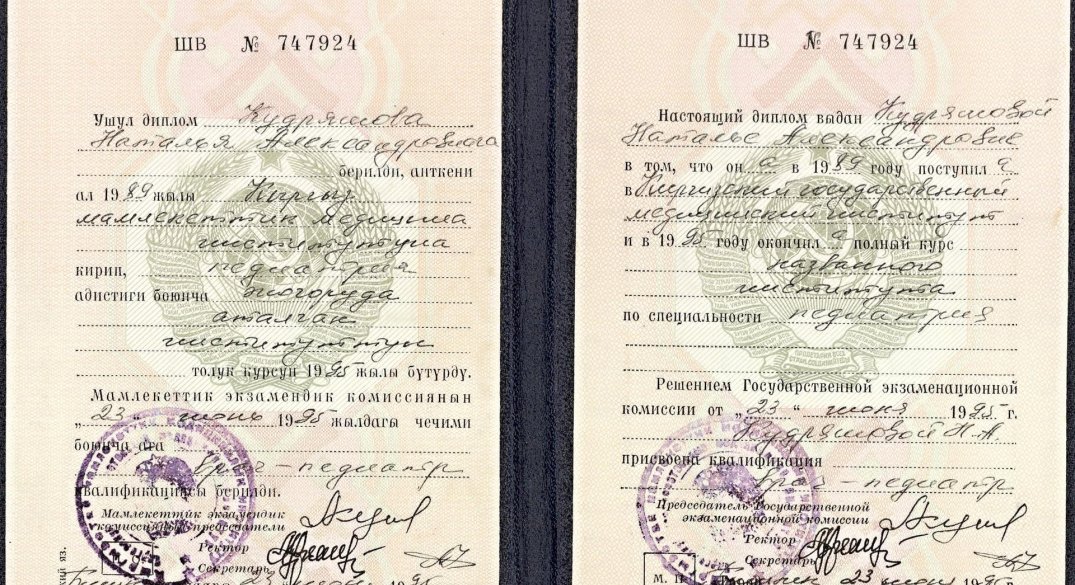 ШВ № 747924
Ушул диплом Кудряшова
Наталья Александровнага
берилди, анткени
ал 1989 жылы Кыргыз
мамлекеттик медицина
институтуна
кирип, педиатрия
адистиги боюнча жогоруда
аталган
институтты
толук курсун 1995 жылы бүтүрдү.
Мамлекеттик экзамендик комиссиянын
„23“ июнь 1995 жылдагы чечими
боюнча ага
врач-педиатр
квалификациясы берилди.
Мамлекеттик экзамендик
комиссиянын председатели
Ректор
Секретарь
23 1995
ШВ № 747924
Настоящий диплом выдан Кудряшовой
Наталье Александровне
в том, что она в 1989 году поступила
в Киргизский государственный
медицинский институт
и в 1995 году окончила полный курс
названного
института
по специальности педиатрия
Решением Государственной экзаменационной
комиссии от „23“ июня 1995 г.
Кудряшовой Н.А.
присвоена квалификация
врач-педиатр
Председатель Государственной
экзаменационной комиссии
Ректор
Секретарь
М. П. 23 июня 1995